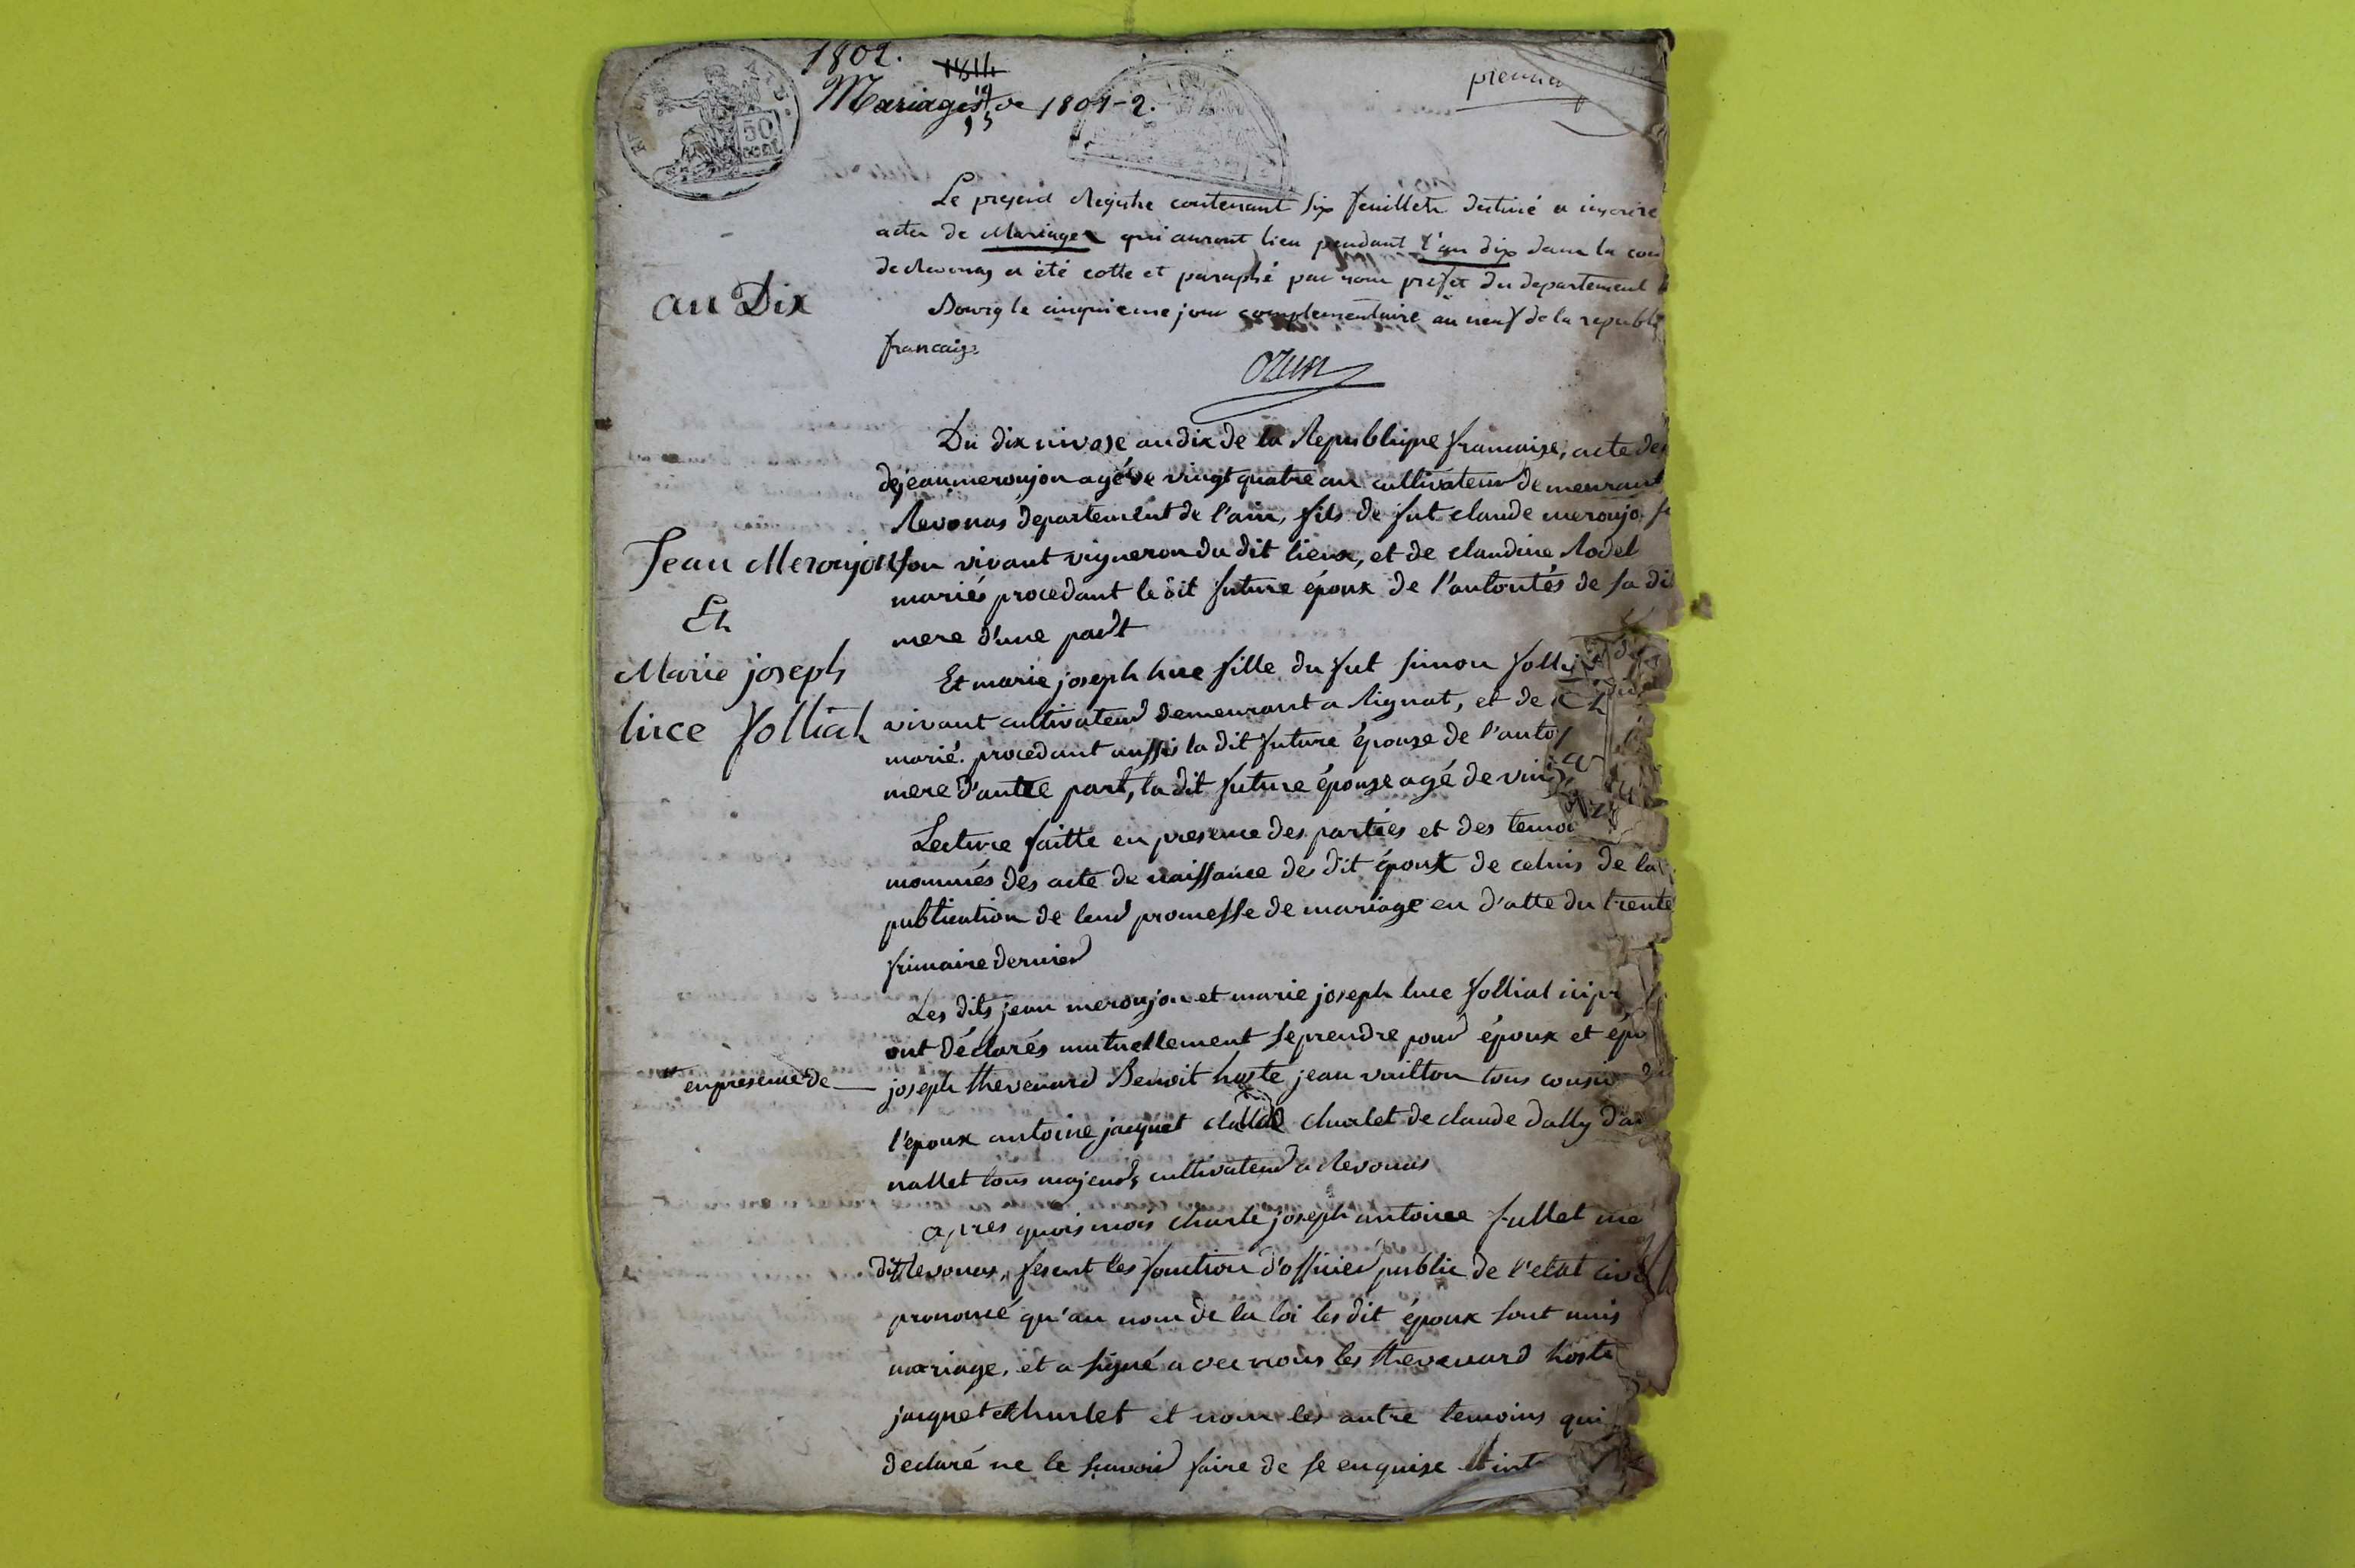 1802.
1814
Mariages de 1801-2.
50
premier
Le present Registre contenant six feuillets destiné a inscrire
actes de Mariages qui auront lieu pendant l'an dix dans la com
de Revonas a été cotte et paraphé par nous préfet du departement
Bourg le cinquieme jour complementaire an neuf de la republi
francaise
Ozun
an Dix
Du dix nivose an dix de la Republique francaise, acte de
de jean meroujon agé de vingt quatre ans cultivateur demeurant
Revonas departement de l'ain, fils de fut claude meroujo
Jean Meroujon
son vivant vigneron du dit lieux, et de claudine Rodet
mariés procedant le dit future époux de l'autorités de sa di
Et
mere d'une part
Marie joseph
luce folliat
Et marie joseph luce fille du fut simon folli
vivant cultivateur demeurant a Rignat, et de
marié. procedant aussis la dit future épouse de l'auto
mere d'autre part, la dit future épouse agé de vin
Lecture faitte en presence des parties et des temoi
nommés des acte de naissance des dit époux de celuis de la
publication de leur promesse de mariage en d'atte du trente
frimaire dernier
Les dits jean meroujon et marie joseph luce folliat
ont déclarés mutuellement se prendre pour époux et épo
en presence de
joseph thevenard Benoit hoste jean vuitton tous cousin
l'epoux antoine jacquet churlet de claude dally
nallet tous majeurs, cultivateur a Revonas
apres quois mois charle joseph antoine fullet
dit Revonas, fesent les fonction d'officier public de l'etat civi
prononcé qu'au nom de la loi les dit époux sont unis
mariage, et a signé avec nous les thevenard hoste
jacquet et churlet et non les autre temoins qui
declaré ne le scavoir faire de se enquise et int